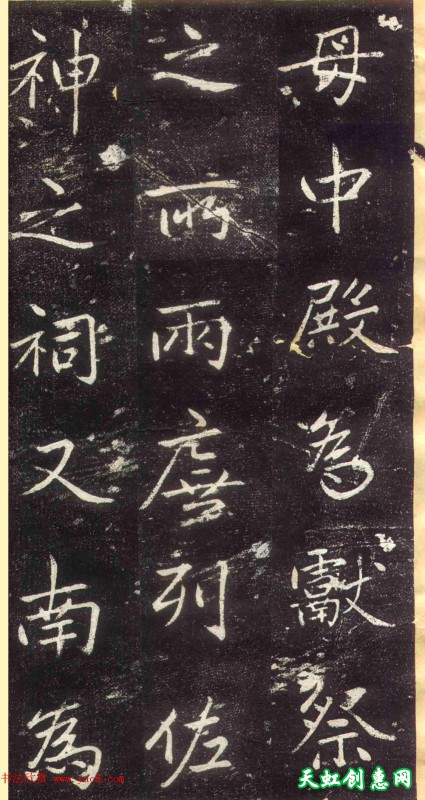 母中殿為獻祭
之所兩廡列佐
神之祠又南為
书法欣赏 www.yac8.com
天虹创惠网